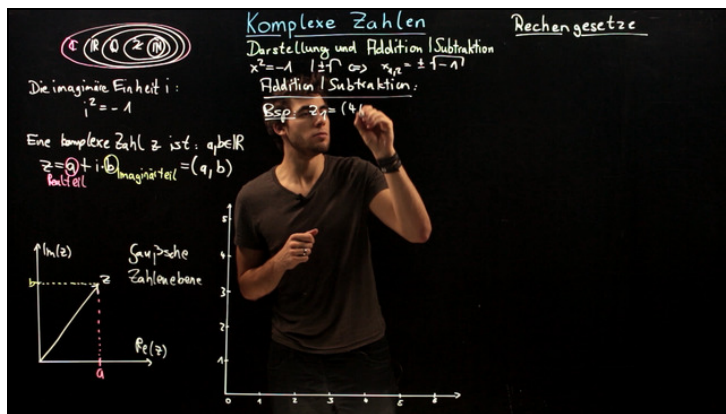 Komplexe Zahlen
Rechengesetze
Darstellung und Addition | Subtraktion
x² = -1 | ±√ ⇔ x₁,₂ = ±√-1
Addition | Subtraktion:
Bsp. z₁ = (4,
ℂ ℝ ℚ ℤ ℕ
Die imaginäre Einheit i:
i² = -1
Eine komplexe Zahl z ist: a,b∈ℝ
z = a + i·b = (a, b)
Realteil Imaginärteil
Im(z)
Gaußsche
Zahlenebene
b
z
Re(z)
a
5
4
3
2
1
0 1 2 3 4 5 6